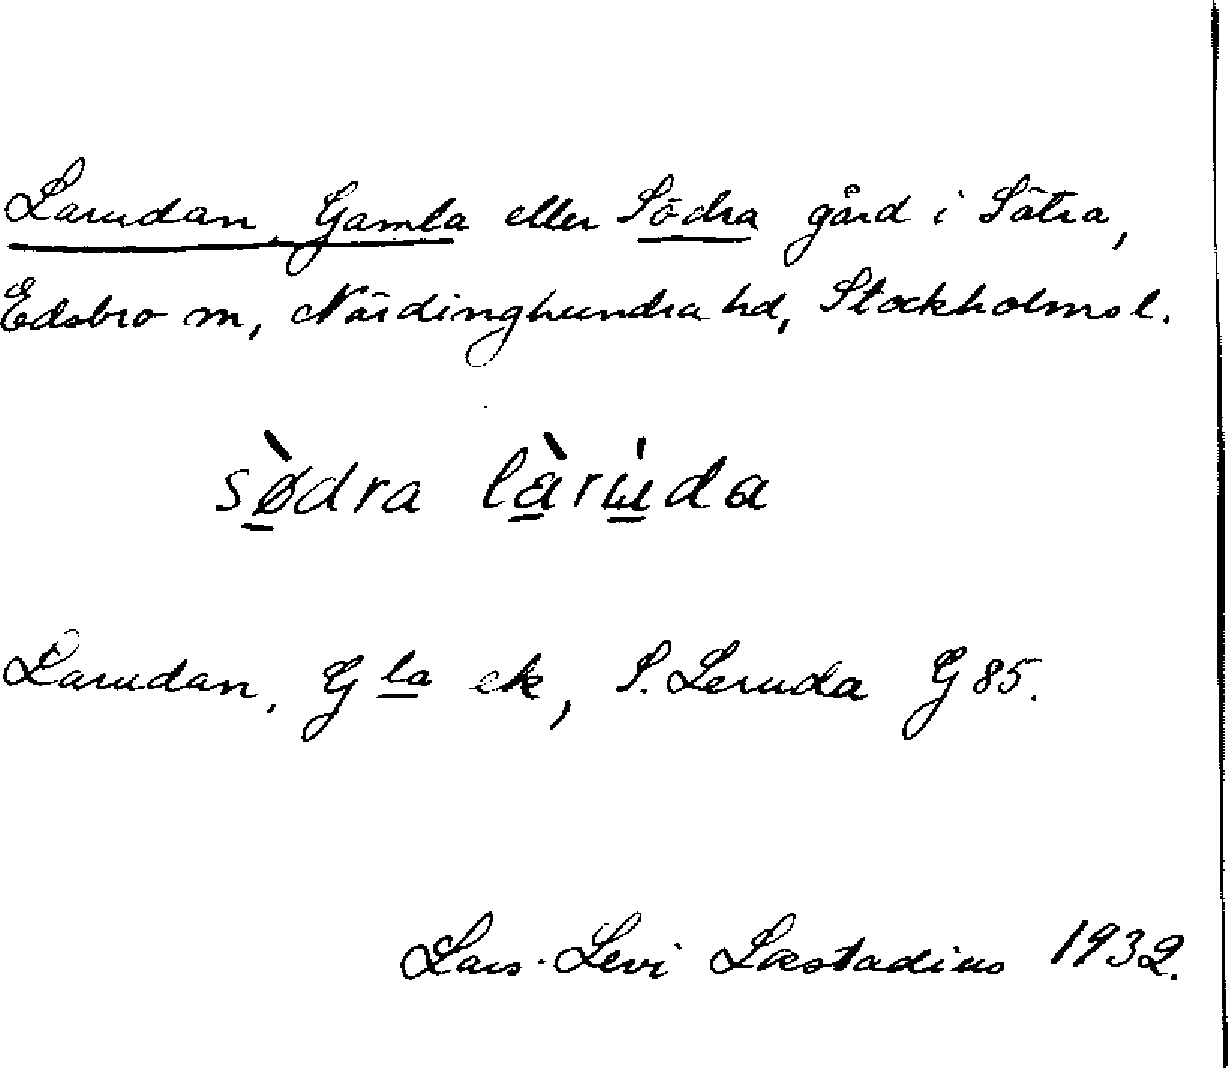 Larudan, Gamla eller Södra gård i Sätra,
Edsbro sn, Närdinghundra hd, Stockholms l.
sø̀dra làrɯ́da
Larudan, Gla ek, S. Leruda G 85.
Lars-Levi Læstadius 1932.